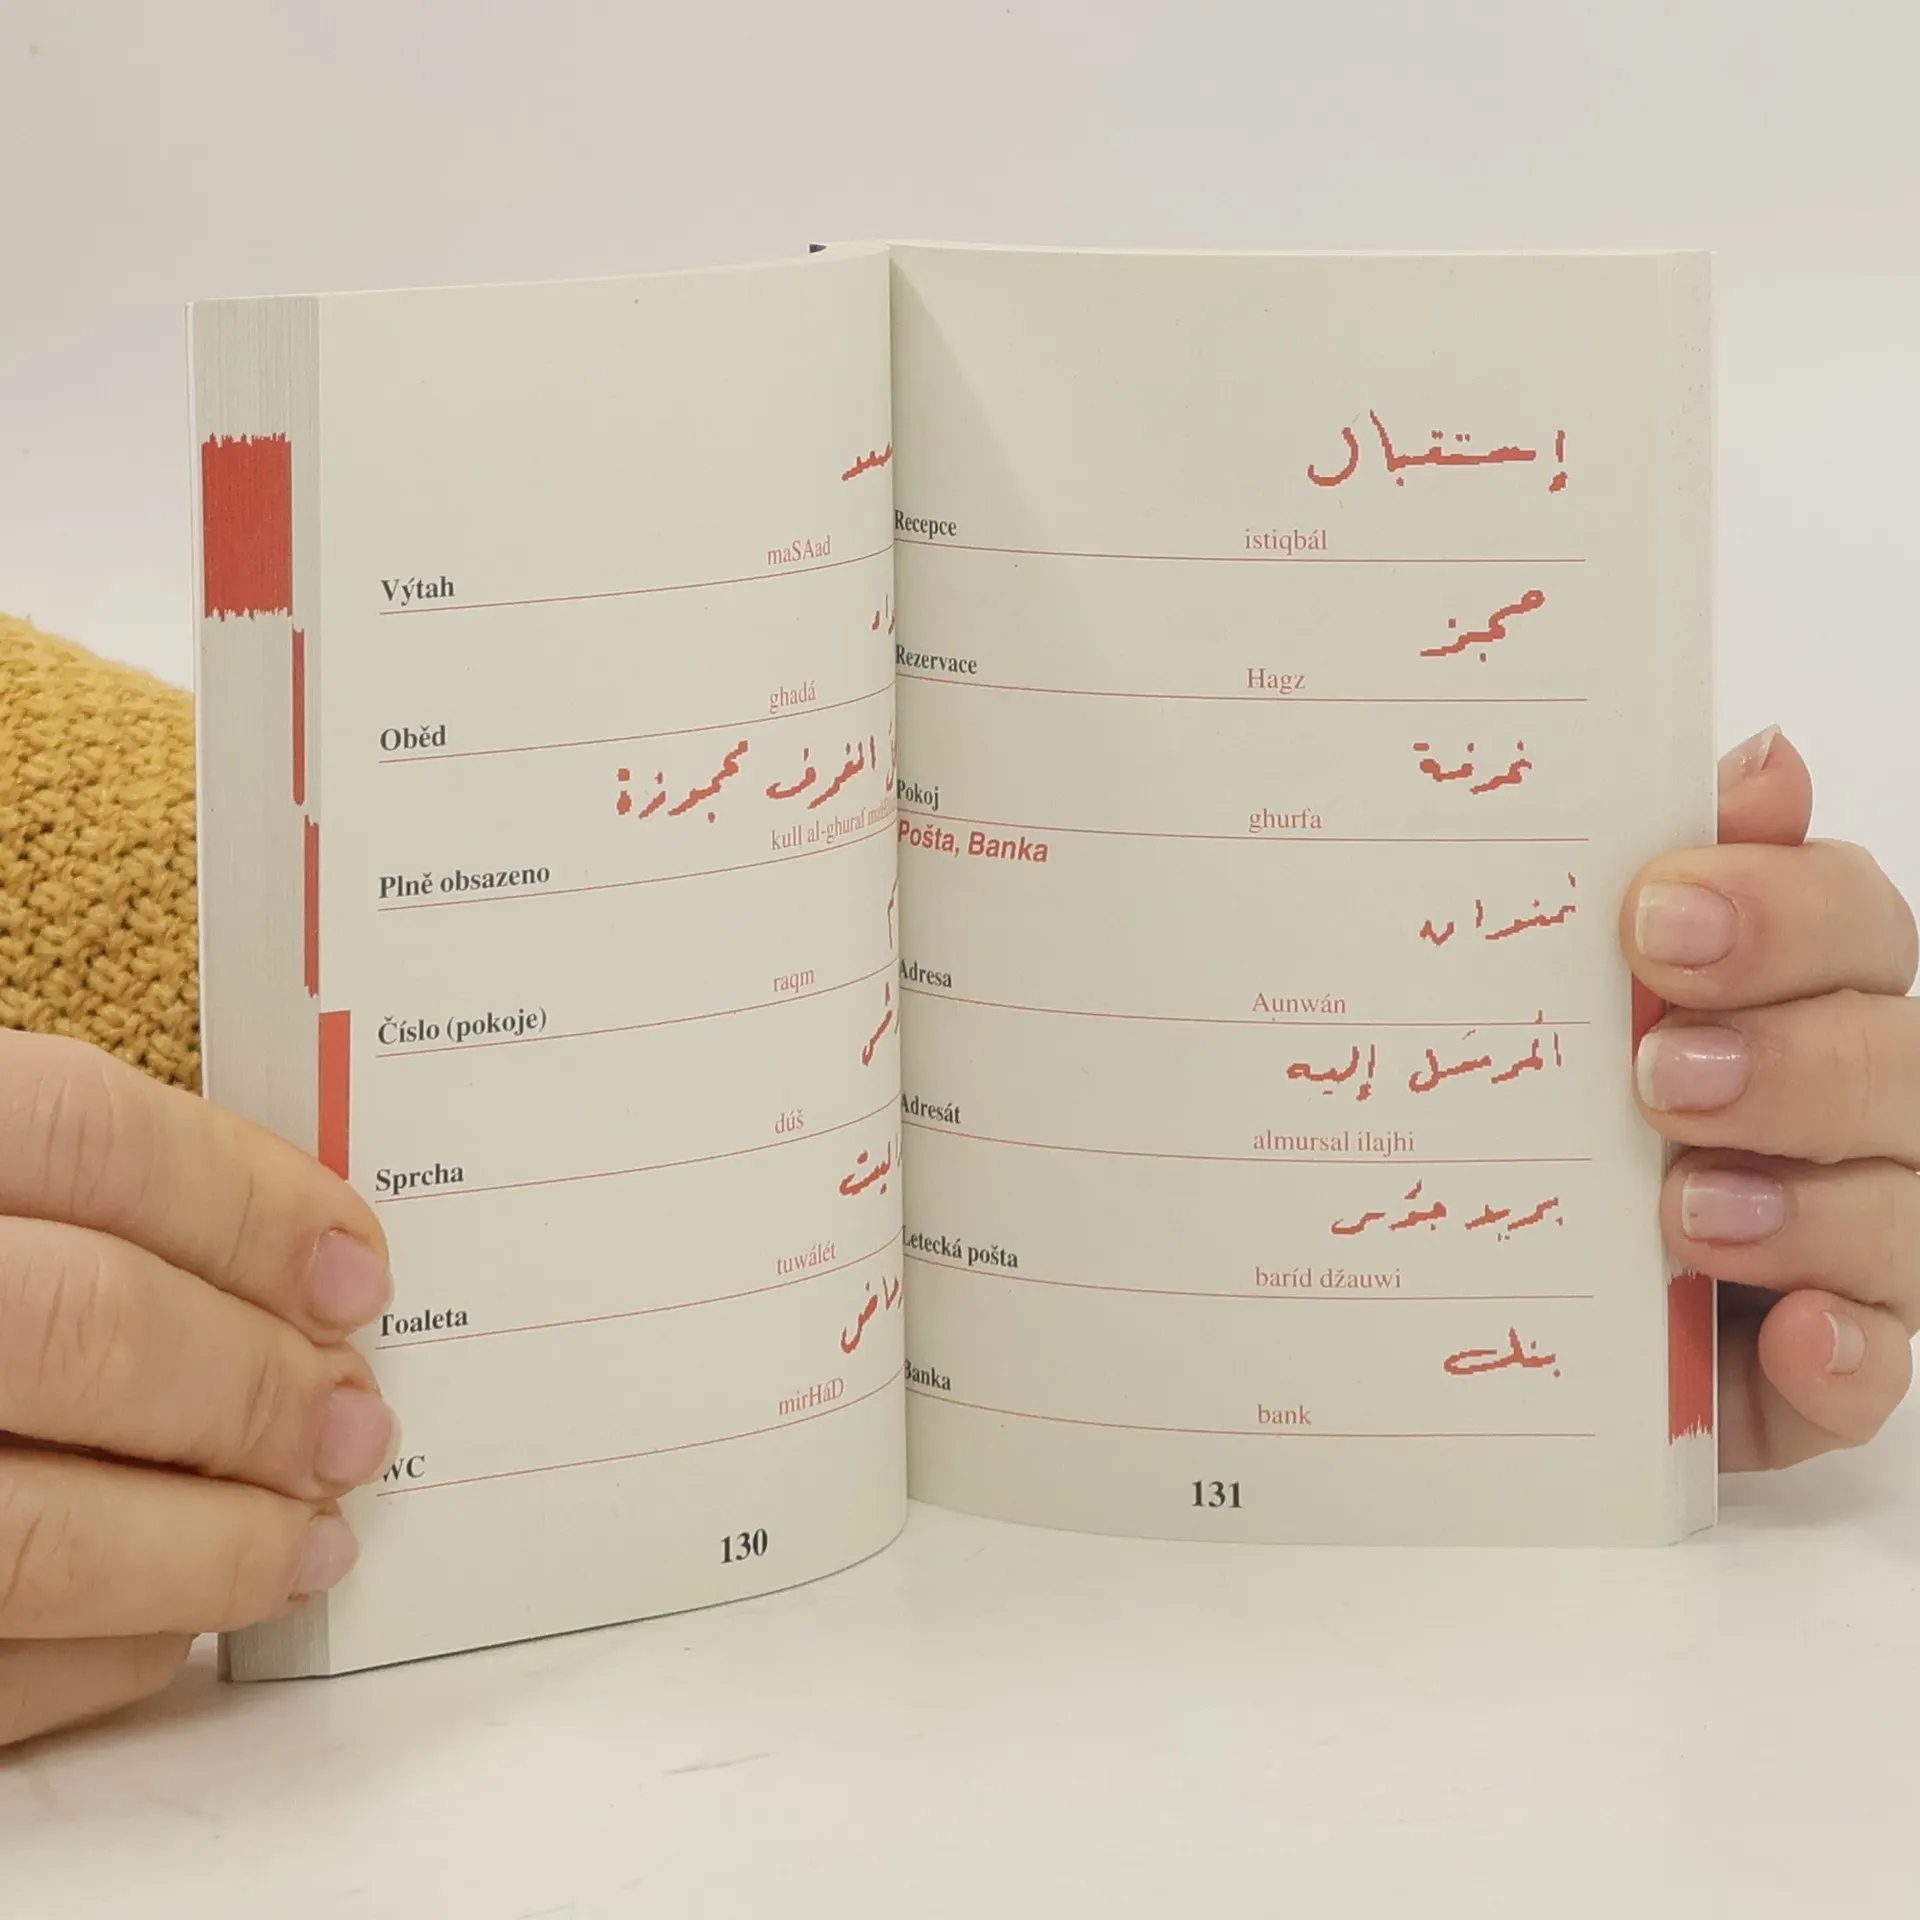 maSAad
Výtah
ghadá
Oběd
الغرف محجوزة
kull al-ghuraf
Plně obsazeno
raqm
Číslo (pokoje)
dúš
Sprcha
tuwálét
Toaleta
mirHáD
WC
130
إستقبال
Recepce istiqbál
حجز
Rezervace Hagz
غرفة
Pokoj ghurfa
Pošta, Banka
عنوان
Adresa Aunwán
المُرسَل إليه
Adresát almursal ilajhi
بريد جوّي
Letecká pošta baríd džauwi
بنك
Banka bank
131